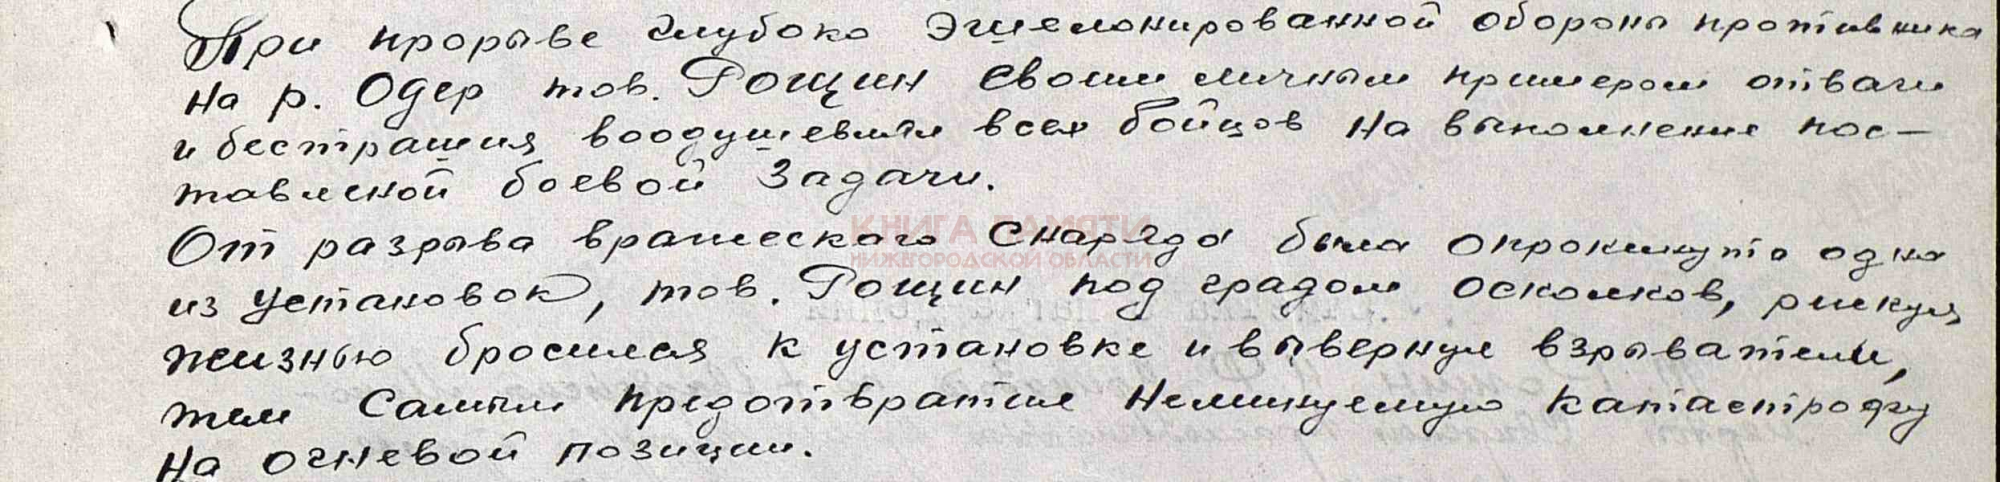 При прорыве глубоко эшелонированной обороны противника
на р. Одер тов. Рощин своим личным примером отваги
и бесстрашия воодушевлял всех бойцов на выполнение пос-
тавленой боевой задачи.
От разрыва вражеского снаряда была опрокинута одна
из установок, тов. Рощин под градом осколков, рискуя
жизнью бросился к установке и вывернул взрыватели,
тем самым предотвратил неминуемую катастрофу
на огневой позиции.
КНИГА ПАМЯТИ
НИЖЕГОРОДСКОЙ ОБЛАСТИ